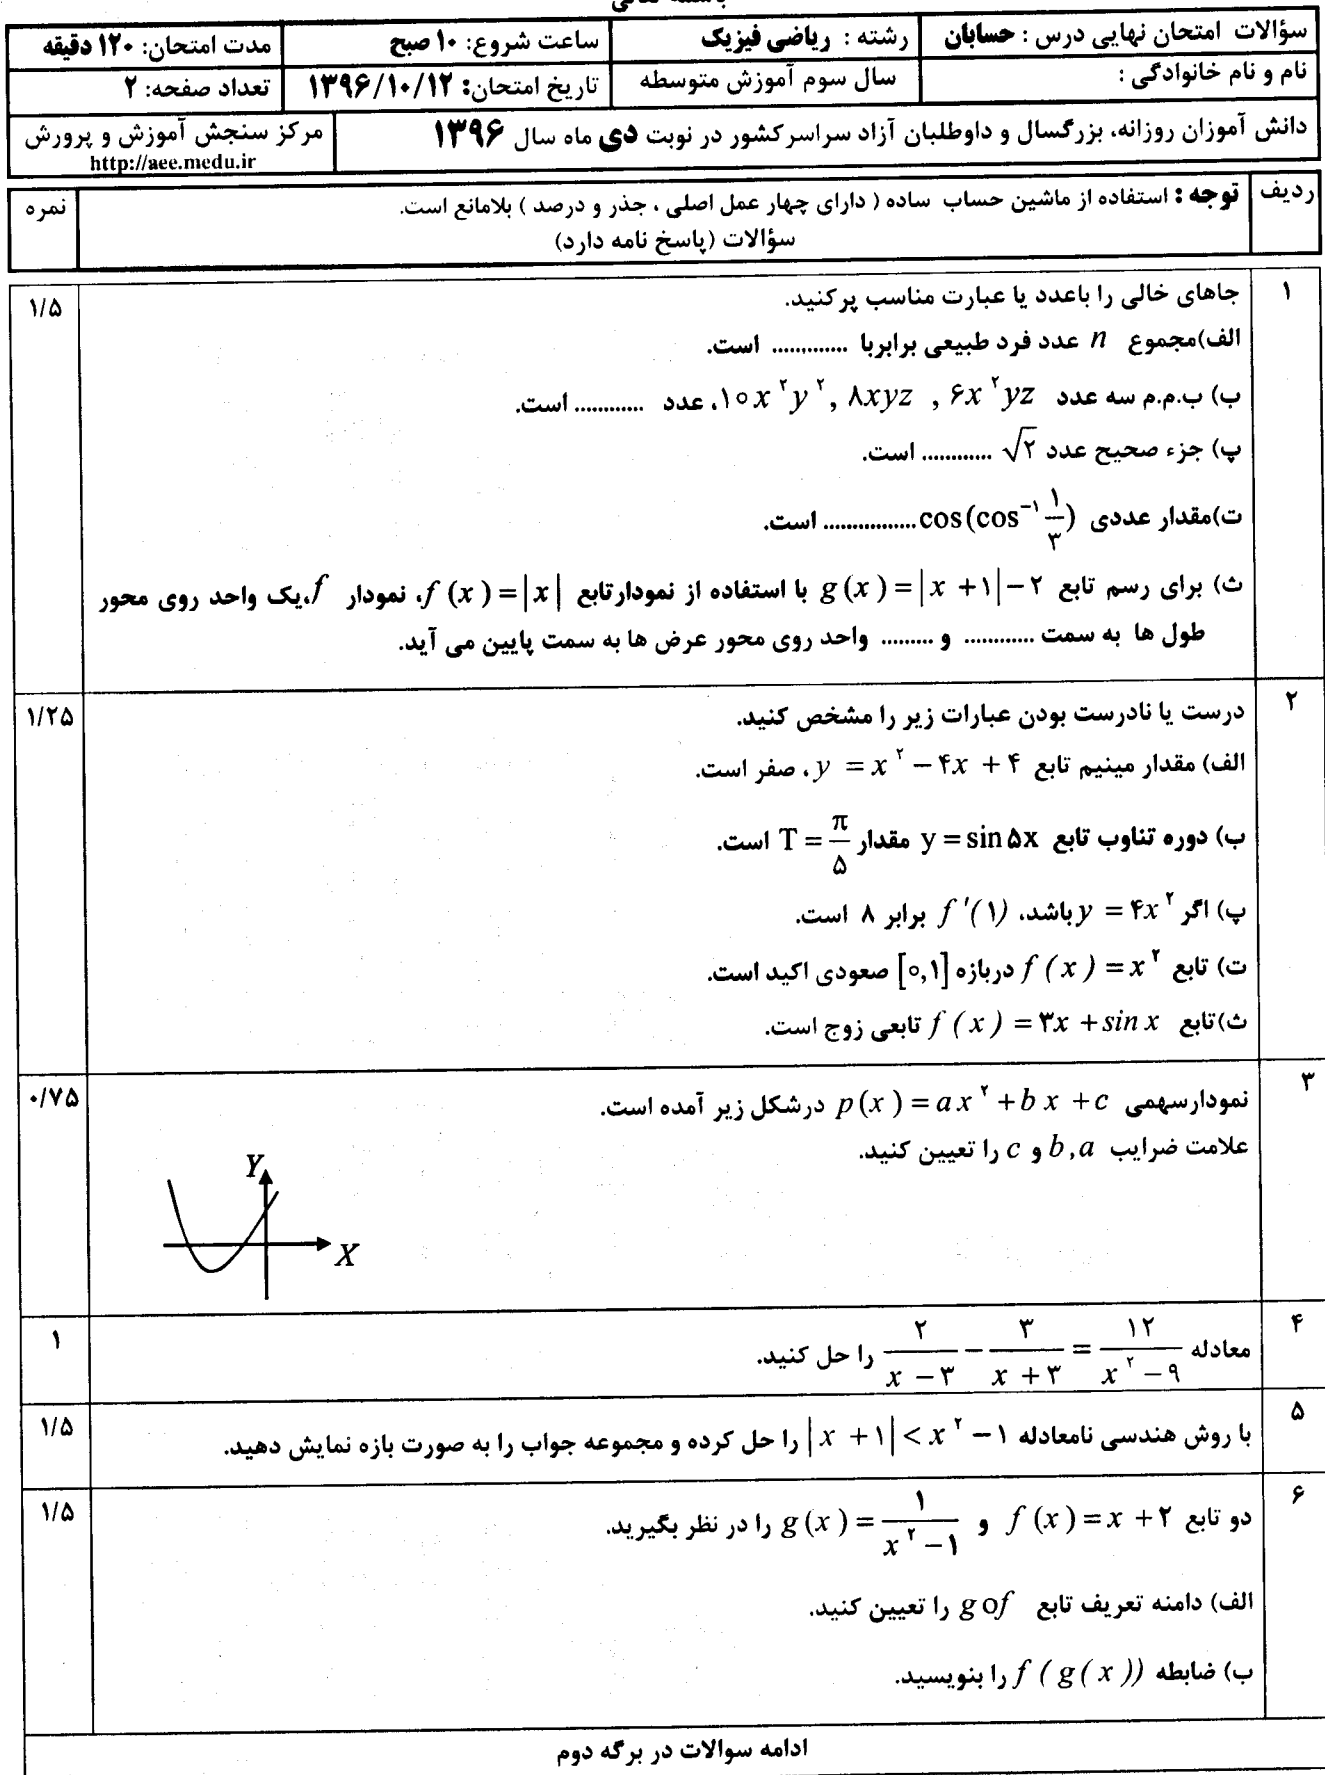 باسمه تعالی
سؤالات امتحان نهایی درس : حسابان | رشته : ریاضی فیزیک | ساعت شروع: ۱۰ صبح | مدت امتحان: ۱۲۰ دقیقه
نام و نام خانوادگی : | سال سوم آموزش متوسطه | تاریخ امتحان: ۱۳۹۶/۱۰/۱۲ | تعداد صفحه: ۲
دانش آموزان روزانه، بزرگسال و داوطلبان آزاد سراسر کشور در نوبت دی ماه سال ۱۳۹۶ | مرکز سنجش آموزش و پرورش
http://aee.medu.ir
ردیف | توجه : استفاده از ماشین حساب ساده ( دارای چهار عمل اصلی ، جذر و درصد ) بلامانع است. | نمره
سؤالات (پاسخ نامه دارد)
۱ | جاهای خالی را باعدد یا عبارت مناسب پرکنید. | ۱/۵
الف)مجموع n عدد فرد طبیعی برابربا ............. است.
ب) ب.م.م سه عدد ۶x^۲yz , ۸xyz , ۱۰x^۲y^۲، عدد ............ است.
پ) جزء صحیح عدد √۲ ............ است.
ت)مقدار عددی cos(cos^{-۱} ۱/۳) ................ است.
ث) برای رسم تابع g(x)=|x+۱|-۲ با استفاده از نمودارتابع f(x)=|x|، نمودار f،یک واحد روی محور
طول ها به سمت ............ و ......... واحد روی محور عرض ها به سمت پایین می آید.
۲ | درست یا نادرست بودن عبارات زیر را مشخص کنید. | ۱/۲۵
الف) مقدار مینیم تابع y = x^۲ - ۴x + ۴ ، صفر است.
ب) دوره تناوب تابع y = sin ۵x مقدار T = π/۵ است.
پ) اگر y = ۴x^۲ باشد، f'(۱) برابر ۸ است.
ت) تابع f(x) = x^۲ دربازه [۰,۱] صعودی اکید است.
ث)تابع f(x) = ۳x + sin x تابعی زوج است.
۳ | نمودارسهمی p(x) = ax^۲ + bx + c درشکل زیر آمده است. | ۰/۷۵
علامت ضرایب b,a و c را تعیین کنید.
Y
X
۴ | معادله ۲/(x-۳) - ۳/(x+۳) = ۱۲/(x^۲-۹) را حل کنید. | ۱
۵ | با روش هندسی نامعادله |x+۱| < x^۲ - ۱ را حل کرده و مجموعه جواب را به صورت بازه نمایش دهید. | ۱/۵
۶ | دو تابع f(x) = x + ۲ و g(x) = ۱/(x^۲-۱) را در نظر بگیرید. | ۱/۵
الف) دامنه تعریف تابع gof را تعیین کنید.
ب) ضابطه f(g(x)) را بنویسید.
ادامه سوالات در برگه دوم